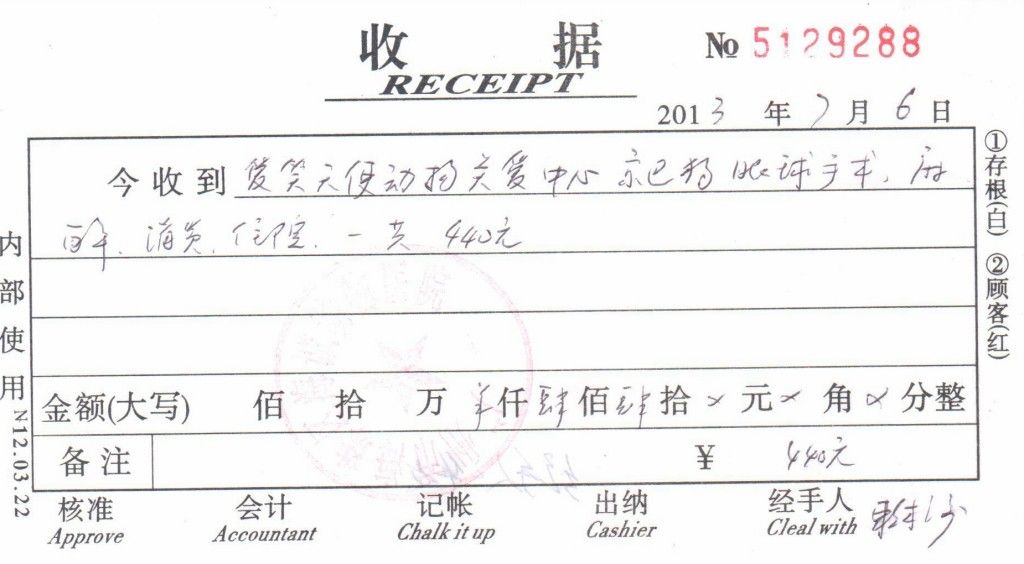 收 据
RECEIPT
№ 5129288
2013 年 7 月 6 日
今收到 爱笑天使动物关爱中心 京巴狗 眼球手术、麻
醉、消炎、住院、一共 440元
金额(大写) 佰 拾 万 羊仟肆佰肆拾 × 元 × 角 × 分整
备注 ¥ 440元
核准 会计 记帐 出纳 经手人
Approve Accountant Chalk it up Cashier Cleal with
内部使用
N12.03.22
①存根(白) ②顾客(红)